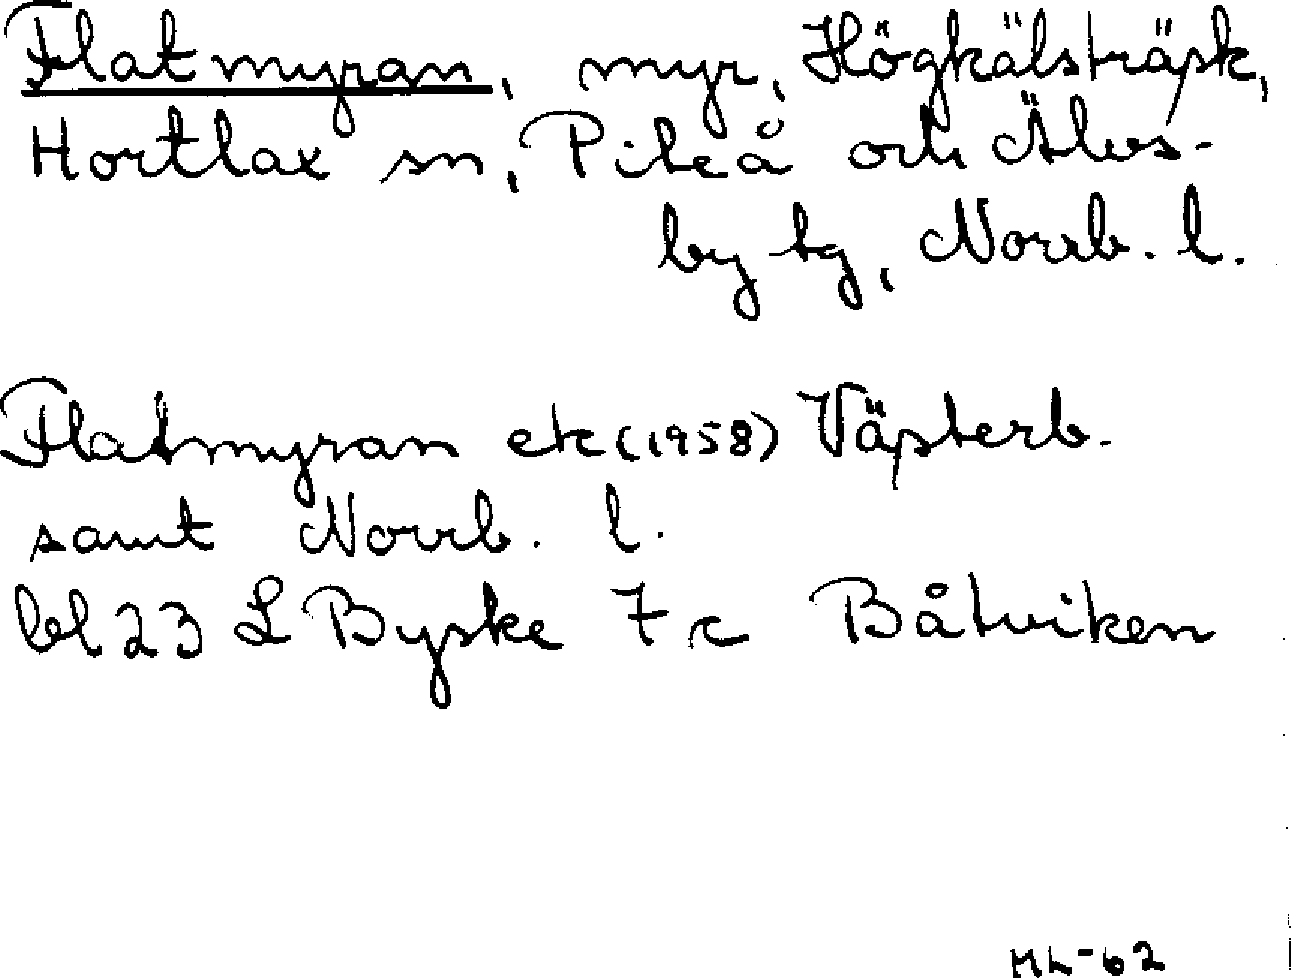 Flatmyran, myr, Högkälsträsk,
Hortlax sn, Piteå och Älvs-
by tg, Norrb. l.
Flatmyran ek (1958) Västerb.
samt Norrb. l.
bl 23 L Byske 7 c Båtviken
ML-62